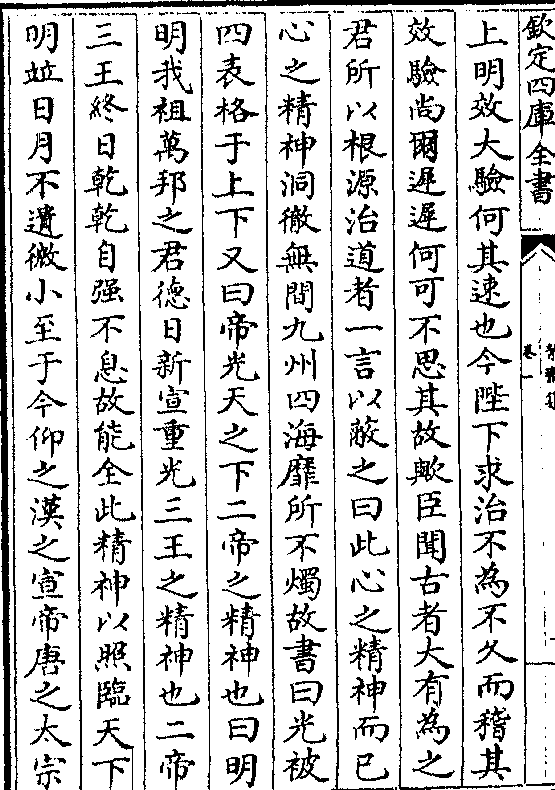 欽定四庫全書
卷一
上明效大驗何其速也今陛下求治不為不久而稽其
效驗尚爾遲遲何可不思其故歟臣聞古者大有為之
君所以根源治道者一言以蔽之曰此心之精神而已
心之精神洞徹無間九州四海靡所不燭故書曰光被
四表格于上下又曰帝光天之下二帝之精神也曰明
明我祖萬邦之君德日新宣重光三王之精神也二帝
三王終日乾乾自强不息故能全此精神以照臨天下
明竝日月不遺微小至于今仰之漢之宣帝唐之太宗